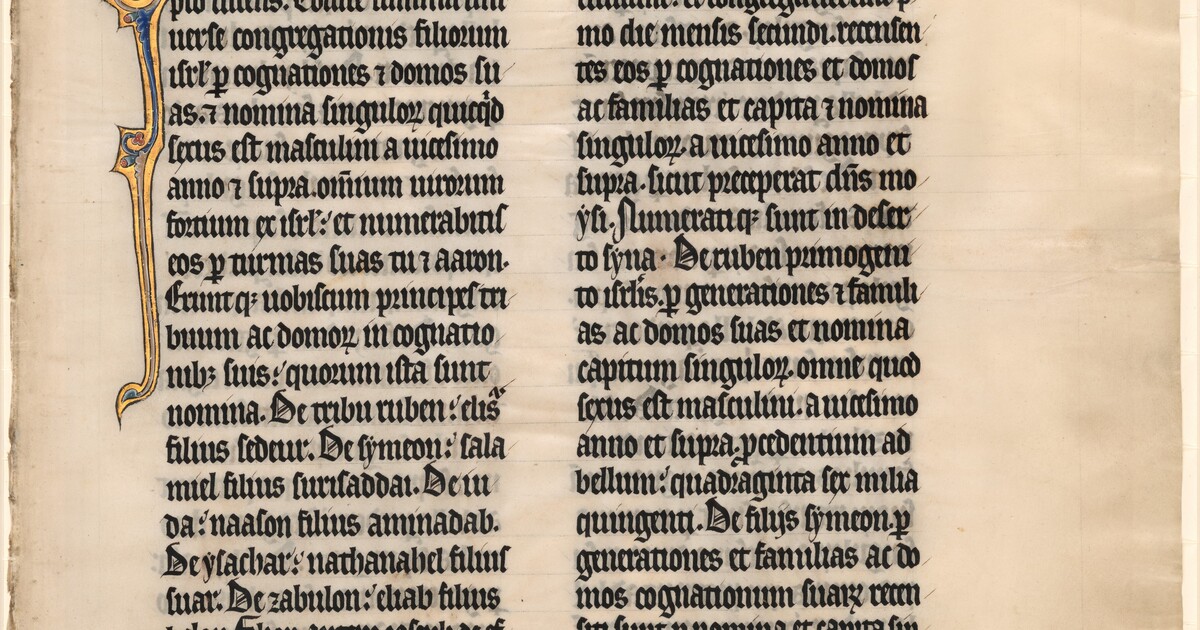 pto dicens. Tollite summam uni
uerse congregationis filiorum
isrl' ꝑ cognationes ⁊ domos su
as. ⁊ nomina singuloꝝ quicq̇d
sexus est masculini a uicesimo
anno ⁊ supra. om̄ium uirorum
fortium ex isrl': et numerabitis
eos ꝑ turmas suas tu ⁊ aaron.
Eruntqꝫ uobiscum principes tri
buum ac domoꝝ in cognatio
nibꝫ suis: quorum ista sunt
nomina. De tribu ruben: elisᵃ
filius sedeur. De symeon: sala
miel filius surisaddai. De iu
da: naason filius aminadab.
De ysachar: nathanahel filius
suar. De zabulon: eliab filius
helon. filiorum autem ioseph de ef
mo die mensis secundi. recensen
tes eos ꝑ cognationes et domos
ac familias et capita ⁊ nomina
singuloꝝ. a uicesimo anno et
supra. sicut preceperat dn̄s mo
ysi. Numeratiqꝫ sunt in deser
to syna. De ruben primogeni
to isrl̄is. ꝑ generationes ⁊ famili
as ac domos suas et nomina
capitum singuloꝝ. omne quod
sexus est masculini. a uicesimo
anno et supra. ꝓcedentium ad
bellum: quadraginta sex milia
quingenti. De filijs symeon. ꝑ
generationes et familias ac do
mos cognationum suaꝝ recen
siti sunt ꝑ nomina et capita sin